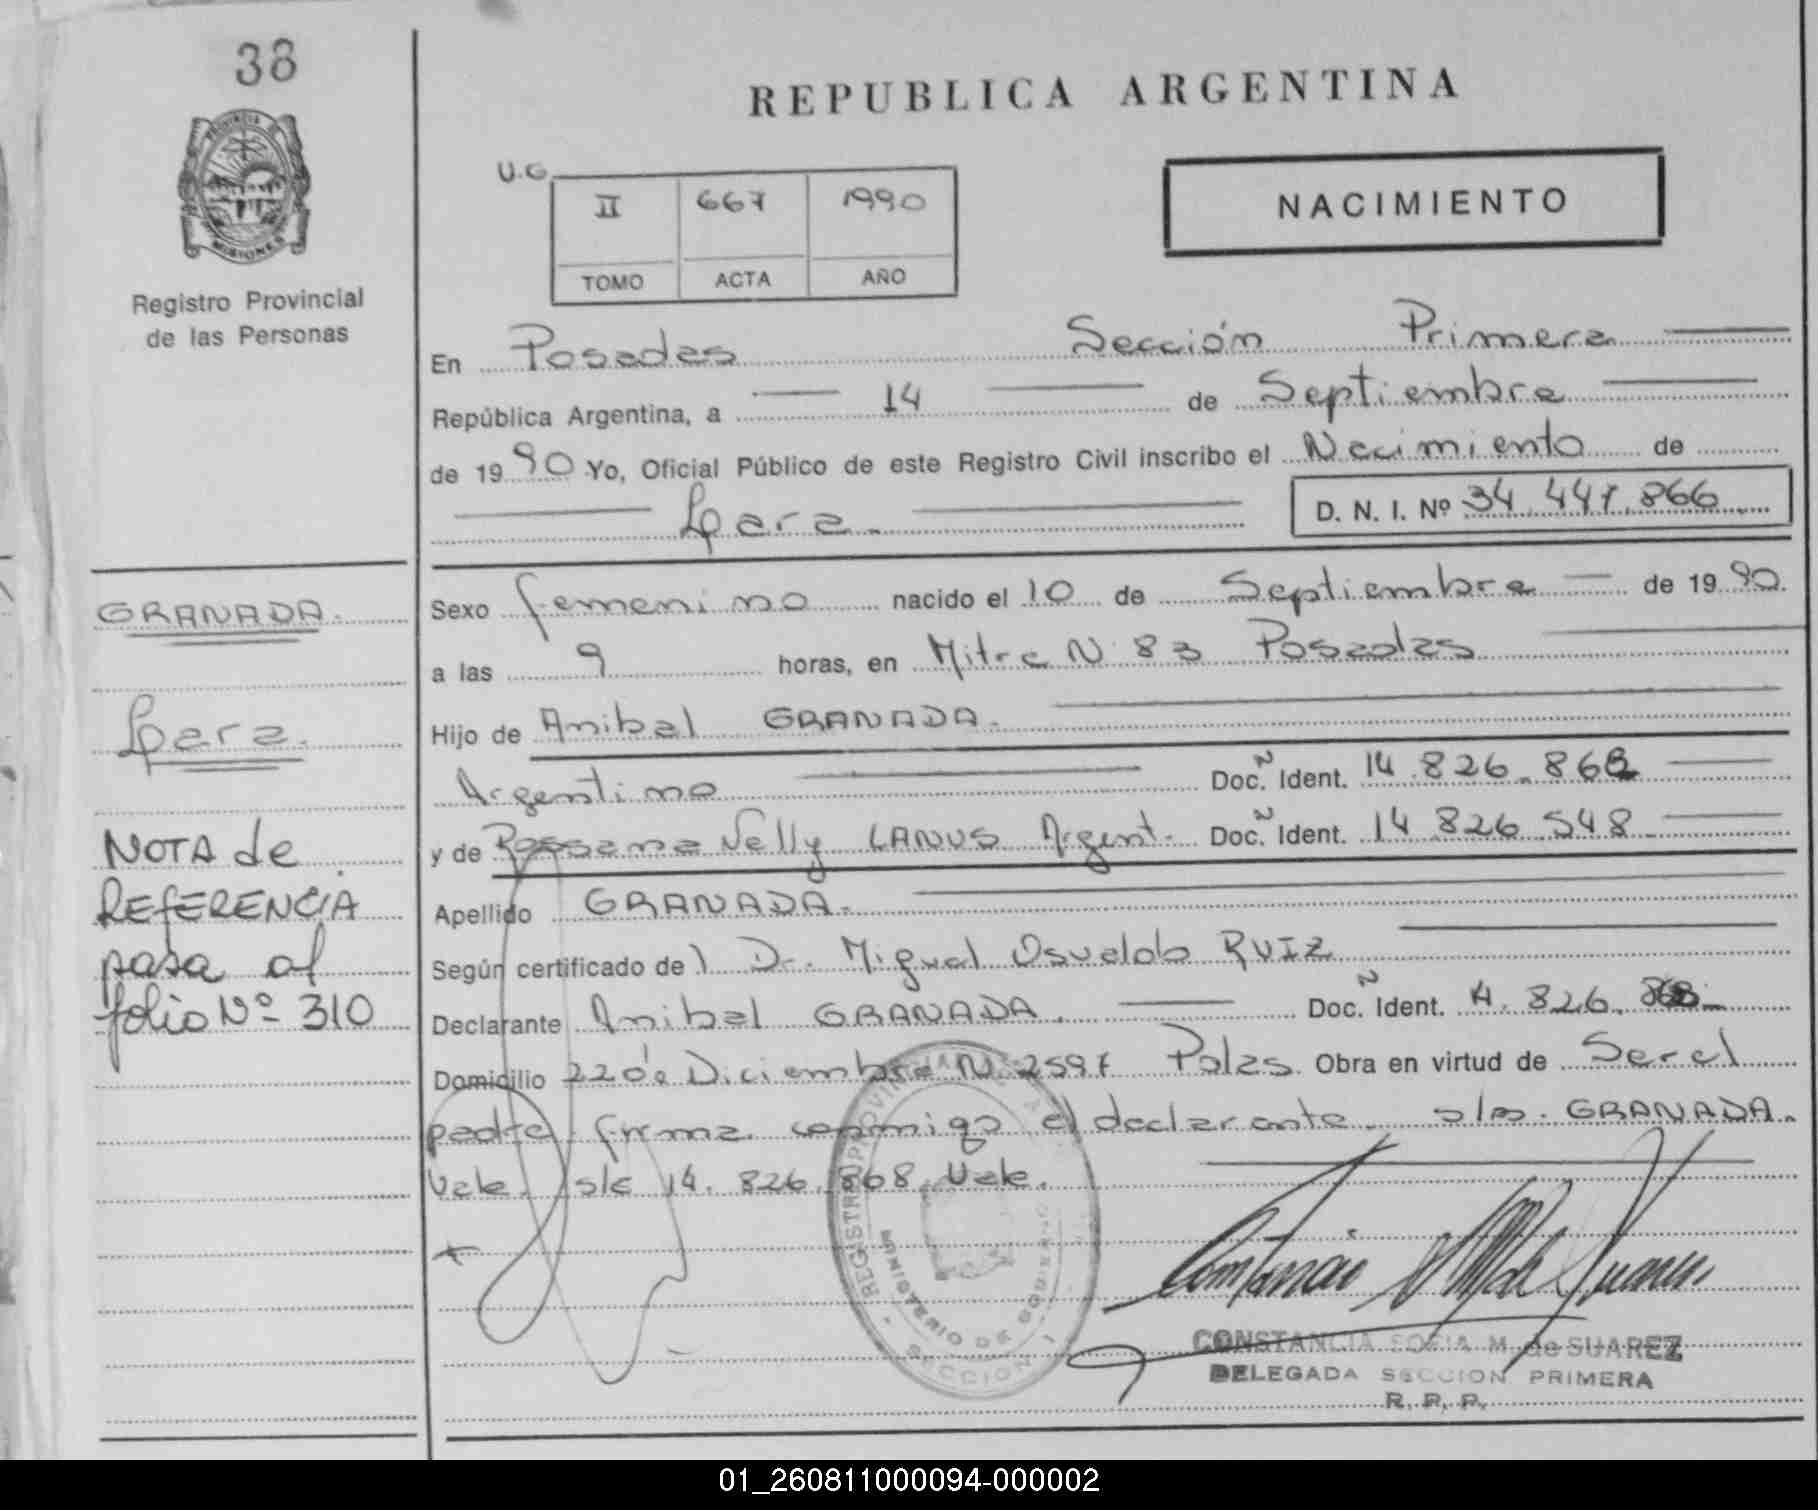 38
PROVINCIA DE
MISIONES
Registro Provincial
de las Personas
REPUBLICA ARGENTINA
U.G.
II 667 1990
TOMO ACTA AÑO
NACIMIENTO
En Posadas Sección Primera
República Argentina, a 14 de Septiembre
de 1990 Yo, Oficial Público de este Registro Civil inscribo el Nacimiento de
Lara. D. N. I. Nº 34.447.866
GRANADA.
Lara.
NOTA de
REFERENCIA
pasa al
folio Nº 310
Sexo femenino nacido el 10 de Septiembre de 1990.
a las 9 horas, en Mitre N 83 Posadas
Hijo de Anibal GRANADA.
Argentino Doc. N Ident. 14.826.868
y de Rossana Nelly LANUS Argent. Doc. N Ident. 14 826 548
Apellido GRANADA.
Según certificado de l Dr. Miguel Osvaldo RUIZ
Declarante Anibal GRANADA. Doc. N Ident. 14.826.868
Domicilio 22 de Diciembre N 2597 Pdas. Obra en virtud de Ser el
padre firma conmigo el declarante. GRANADA.
Vale. s/e 14.826.868 Vale.
MINISTERIO DE GOBIERNO
SECCION 1
CONSTANCIA SOFIA M. de SUAREZ
DELEGADA SECCION PRIMERA
R. P. P.
01_260811000094-000002